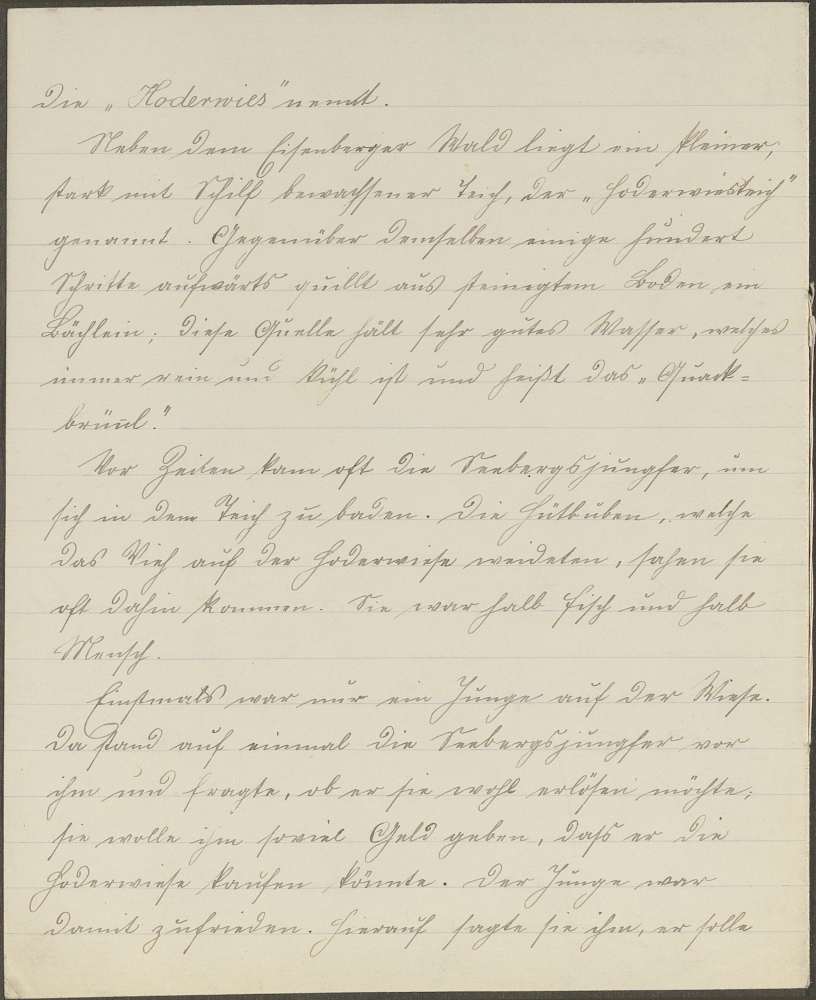 die „Hoderwies" nennt.
Neben dem Eisenberger Wald liegt ein kleiner,
stark mit Schilf bewachsener Teich, der „Hoderwiesteich"
genannt. Gegenüber demselben einige hundert
Schritte aufwärts quillt aus steinigtem Boden ein
Bächlein; diese Quelle hält sehr gutes Wasser, welches
immer rein und kühl ist und heißt das „Quack-
brünnl."
Vor Zeiten kam oft die Seebergsjungfer, um
sich in dem Teich zu baden. Die Hütbuben, welche
das Vieh auf der Hoderwiese weideten, sahen sie
oft dahin kommen. Sie war halb Fisch und halb
Mensch.
Einstmals war nur ein Junge auf der Wiese.
Da stand auf einmal die Seebergsjungfer vor
ihm und fragte, ob er sie wohl erlösen möchte;
sie wolle ihm soviel Geld geben, dass er die
Hoderwiese kaufen könnte. Der Junge war
damit zufrieden. Hierauf sagte sie ihm, er solle